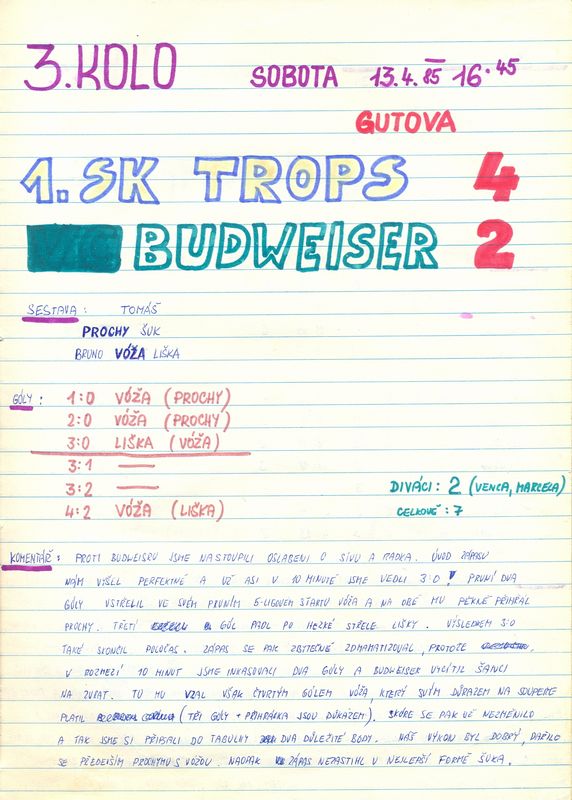 3. KOLO SOBOTA 13.4.85 16.45
GUTOVA
1. SK TROPS 4
BUDWEISER 2
SESTAVA: TOMÁŠ
PROCHY ŠUK
BRUNO VÓŽA LIŠKA
GÓLY: 1:0 VÓŽA (PROCHY)
2:0 VÓŽA (PROCHY)
3:0 LIŠKA (VÓŽA)
3:1 —
3:2 —
4:2 VÓŽA (LIŠKA)
DIVÁCI: 2 (VENCA, MARCELA)
CELKOVĚ: 7
KOMENTÁŘ: PROTI BUDWEISRU JSME NASTOUPILI OSLABENI O SÍVU A RADKA. ÚVOD ZÁPASU
NÁM VYŠEL PERFEKTNĚ A UŽ ASI V 10 MINUTĚ JSME VEDLI 3:0! PRVNÍ DVA
GÓLY VSTŘELIL VE SVÉM PRVNÍM LIGOVÉM STARTU VÓŽA A NA OBĚ MU PĚKNĚ PŘIHRÁL
PROCHY. TŘETÍ GÓL PADL PO HEZKÉ STŘELE LIŠKY. VÝSLEDKEM 3:0
TAKÉ SKONČIL POLOČAS. ZÁPAS SE PAK ZBYTEČNĚ ZDRAMATIZOVAL, PROTOŽE
V ROZMEZÍ 10 MINUT JSME INKASOVALI DVA GÓLY A BUDWEISER VYCÍTIL ŠANCI
NA ZVRAT. TU MU VZAL VŠAK ČTVRTÝM GÓLEM VÓŽA, KTERÝ SVÝM DŮRAZEM NA SOUPEŘE
PLATIL (TŘI GÓLY + PŘIHRÁVKA JSOU DŮKAZEM). SKÓRE SE PAK UŽ NEZMĚNILO
A TAK JSME SI PŘIPSALI DO TABULKY DVA DŮLEŽITÉ BODY. NÁŠ VÝKON BYL DOBRÝ, DAŘILO
SE PŘEDEVŠÍM PROCHYMU S VÓŽOU. NAOPAK ZÁPAS NEZASTIHL V NEJLEPŠÍ FORMĚ ŠUKA.